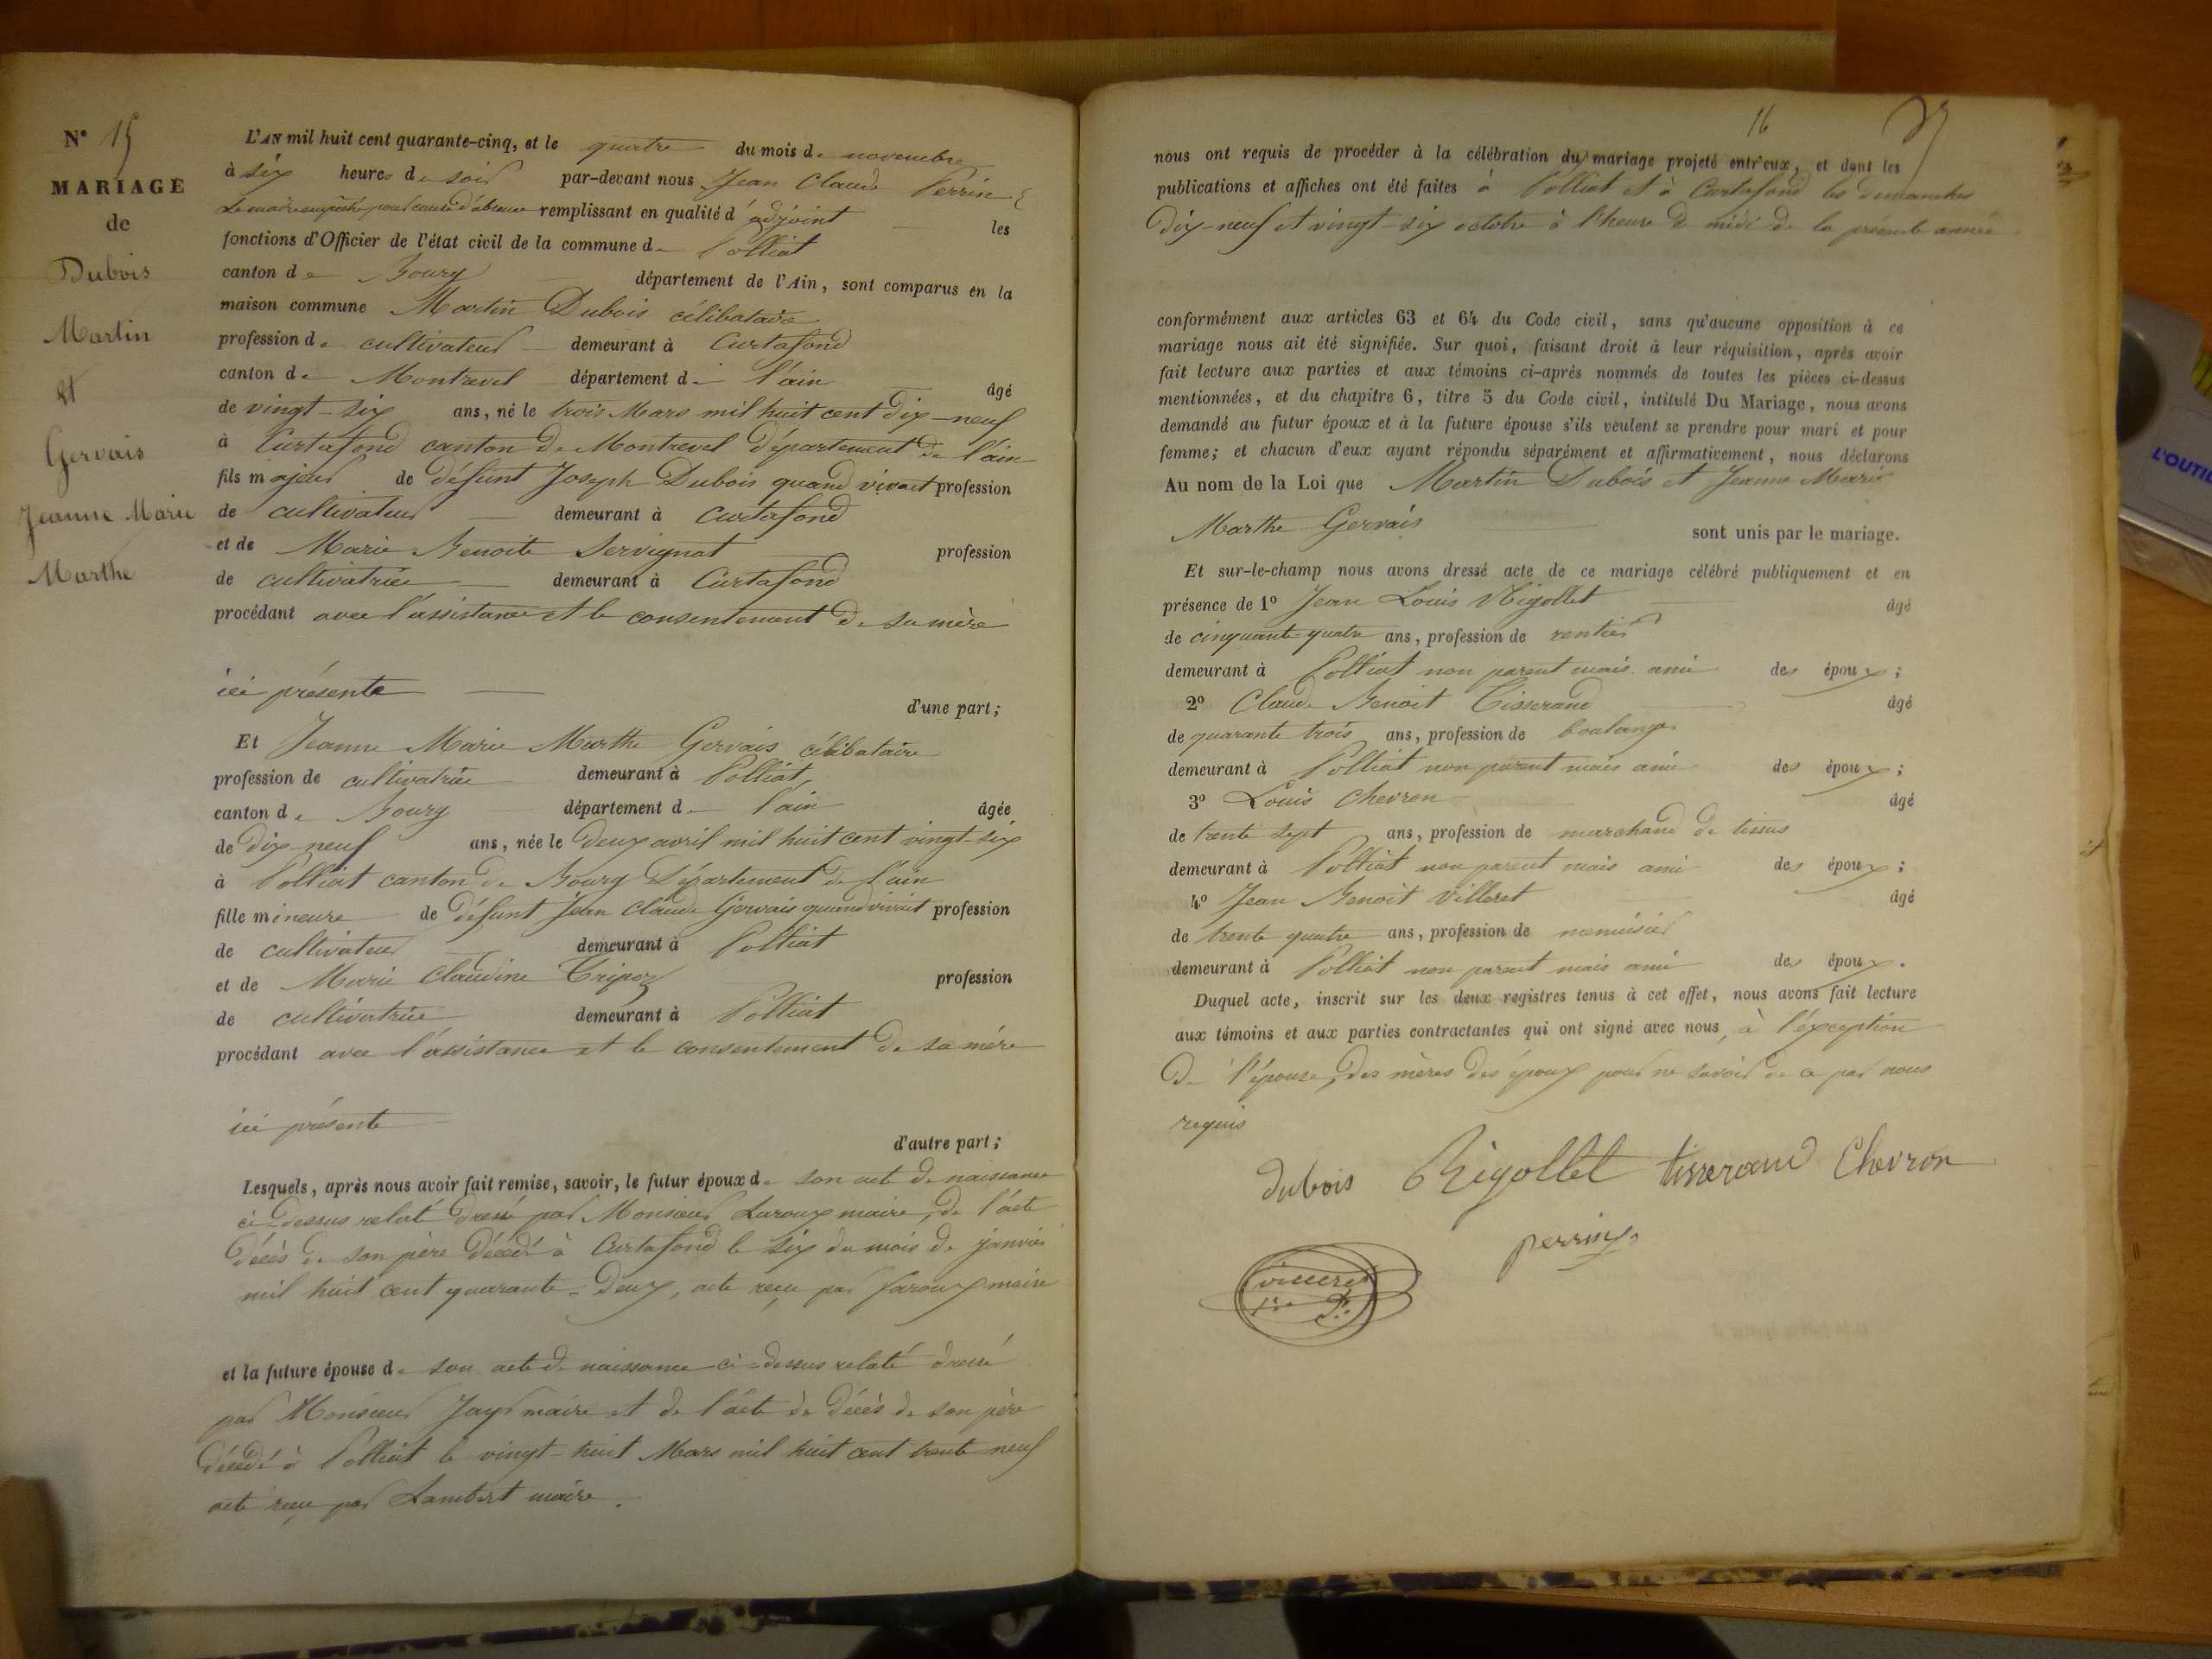 N° 15
MARIAGE
de
Dubois
Martin
et
Gervais
Jeanne Marie
Marthe
L'AN mil huit cent quarante-cinq, et le quatre du mois de novembre
à six heures du soir par-devant nous Jean Claude Perrin
Le maire empêché pour cause d'absence remplissant en qualité d'adjoint les
fonctions d'Officier de l'état civil de la commune de Polliat
canton de Bourg département de l'Ain, sont comparus en la
maison commune Martin Dubois célibataire
profession de cultivateur demeurant à Curtafond
canton de Montrevel département de l'ain âgé
de vingt-six ans, né le trois Mars mil huit cent dix-neuf
à Curtafond canton de Montrevel département de l'ain
fils majeur de défunt Joseph Dubois quand vivait profession
de cultivateur demeurant à Curtafond
et de Marie Benoite Servignat profession
de cultivatrice demeurant à Curtafond
procédant avec l'assistance et le consentement de sa mère
ici présente
d'une part;
Et Jeanne Marie Marthe Gervais célibataire
profession de cultivatrice demeurant à Polliat
canton de Bourg département de l'ain âgée
de dix-neuf ans, née le deux avril mil huit cent vingt-six
à Polliat canton de Bourg département de l'ain
fille mineure de défunt Jean Claude Gervais quand vivait profession
de cultivateur demeurant à Polliat
et de Marie Claudine Tripoz profession
de cultivatrice demeurant à Polliat
procédant avec l'assistance et le consentement de sa mère
ici présente
d'autre part;
Lesquels, après nous avoir fait remise, savoir, le futur époux de son acte de naissance
ci-dessus relaté dressé par Monsieur Laroux maire, de l'acte
décès de son père décédé à Curtafond le six du mois de janvier
mil huit cent quarante-deux, acte reçu par Laroux maire
et la future épouse de son acte de naissance ci-dessus relaté dressé
par Monsieur Jayr maire et de l'acte de décès de son père
décédé à Polliat le vingt-huit Mars mil huit cent trente-neuf
acte reçu par Lambert maire.
16
nous ont requis de procéder à la célébration du mariage projeté entr'eux, et dont les
publications et affiches ont été faites à Polliat et à Curtafond les dimanches
dix-neuf et vingt-six octobre à l'heure de midi de la présente année
conformément aux articles 63 et 64 du Code civil, sans qu'aucune opposition à ce
mariage nous ait été signifiée. Sur quoi, faisant droit à leur réquisition, après avoir
fait lecture aux parties et aux témoins ci-après nommés de toutes les pièces ci-dessus
mentionnées, et du chapitre 6, titre 5 du Code civil, intitulé Du Mariage, nous avons
demandé au futur époux et à la future épouse s'ils veulent se prendre pour mari et pour
femme; et chacun d'eux ayant répondu séparément et affirmativement, nous déclarons
Au nom de la Loi que Martin Dubois et Jeanne Marie
Marthe Gervais sont unis par le mariage.
Et sur-le-champ nous avons dressé acte de ce mariage célébré publiquement et en
présence de 1° Jean Louis Rigollet âgé
de cinquante-quatre ans, profession de rentier
demeurant à Polliat non parent mais ami des époux;
2° Claude Benoit Tisserand âgé
de quarante trois ans, profession de boulanger
demeurant à Polliat non parent mais ami des époux;
3° Louis Chevron âgé
de trente sept ans, profession de marchand de tissus
demeurant à Polliat non parent mais ami des époux;
4° Jean Benoit Villeret âgé
de trente quatre ans, profession de menuisier
demeurant à Polliat non parent mais ami des époux.
Duquel acte, inscrit sur les deux registres tenus à cet effet, nous avons fait lecture
aux témoins et aux parties contractantes qui ont signé avec nous, à l'exception
de l'épouse, des mères des époux pour ne savoir de ce par nous
requis
dubois Rigollet tisserand Chevron
perrin
villeret
L'OUTIL